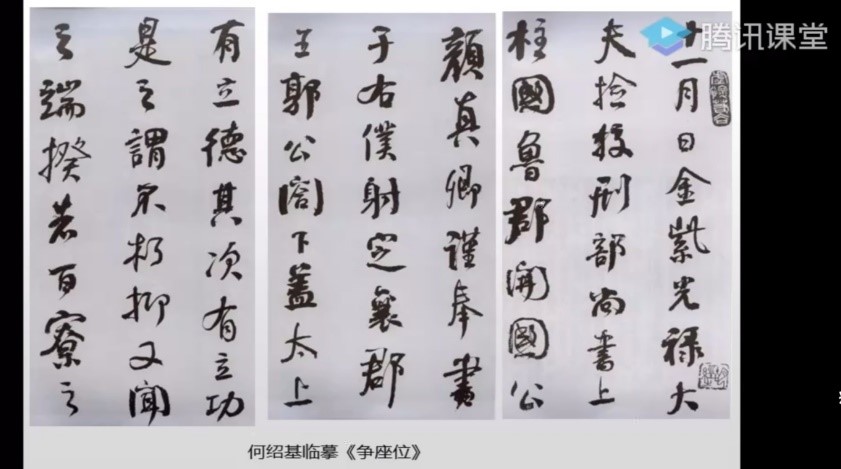 十一月日金紫光禄大
夫捡挍刑部尚書上
柱國魯郡開國公
顔真卿謹奉書
于右僕射定襄郡
王郭公閤下蓋太上
有立德其次有立功
是之謂不朽抑又聞
之端揆者百寮之
何绍基临摹《争座位》
腾讯课堂